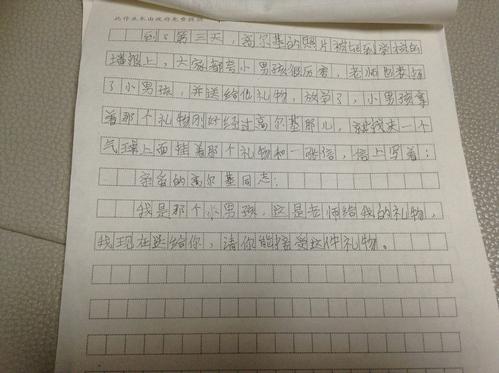 此作业本由政府免费提供
到了第三天，高尔基的照片被贴到学校的
墙报上，大家都夸小男孩很厉害，老师表扬
了小男孩，并送给他礼物，放学了，小男孩拿
着那个礼物刚好经过高尔基那儿，就找来一个
气球上面挂着那个礼物和一张信，信上写着：
亲爱的高尔基同志：
我是那个小男孩，这是老师给我的礼物，
我现在送给你，请你能接受这件礼物。